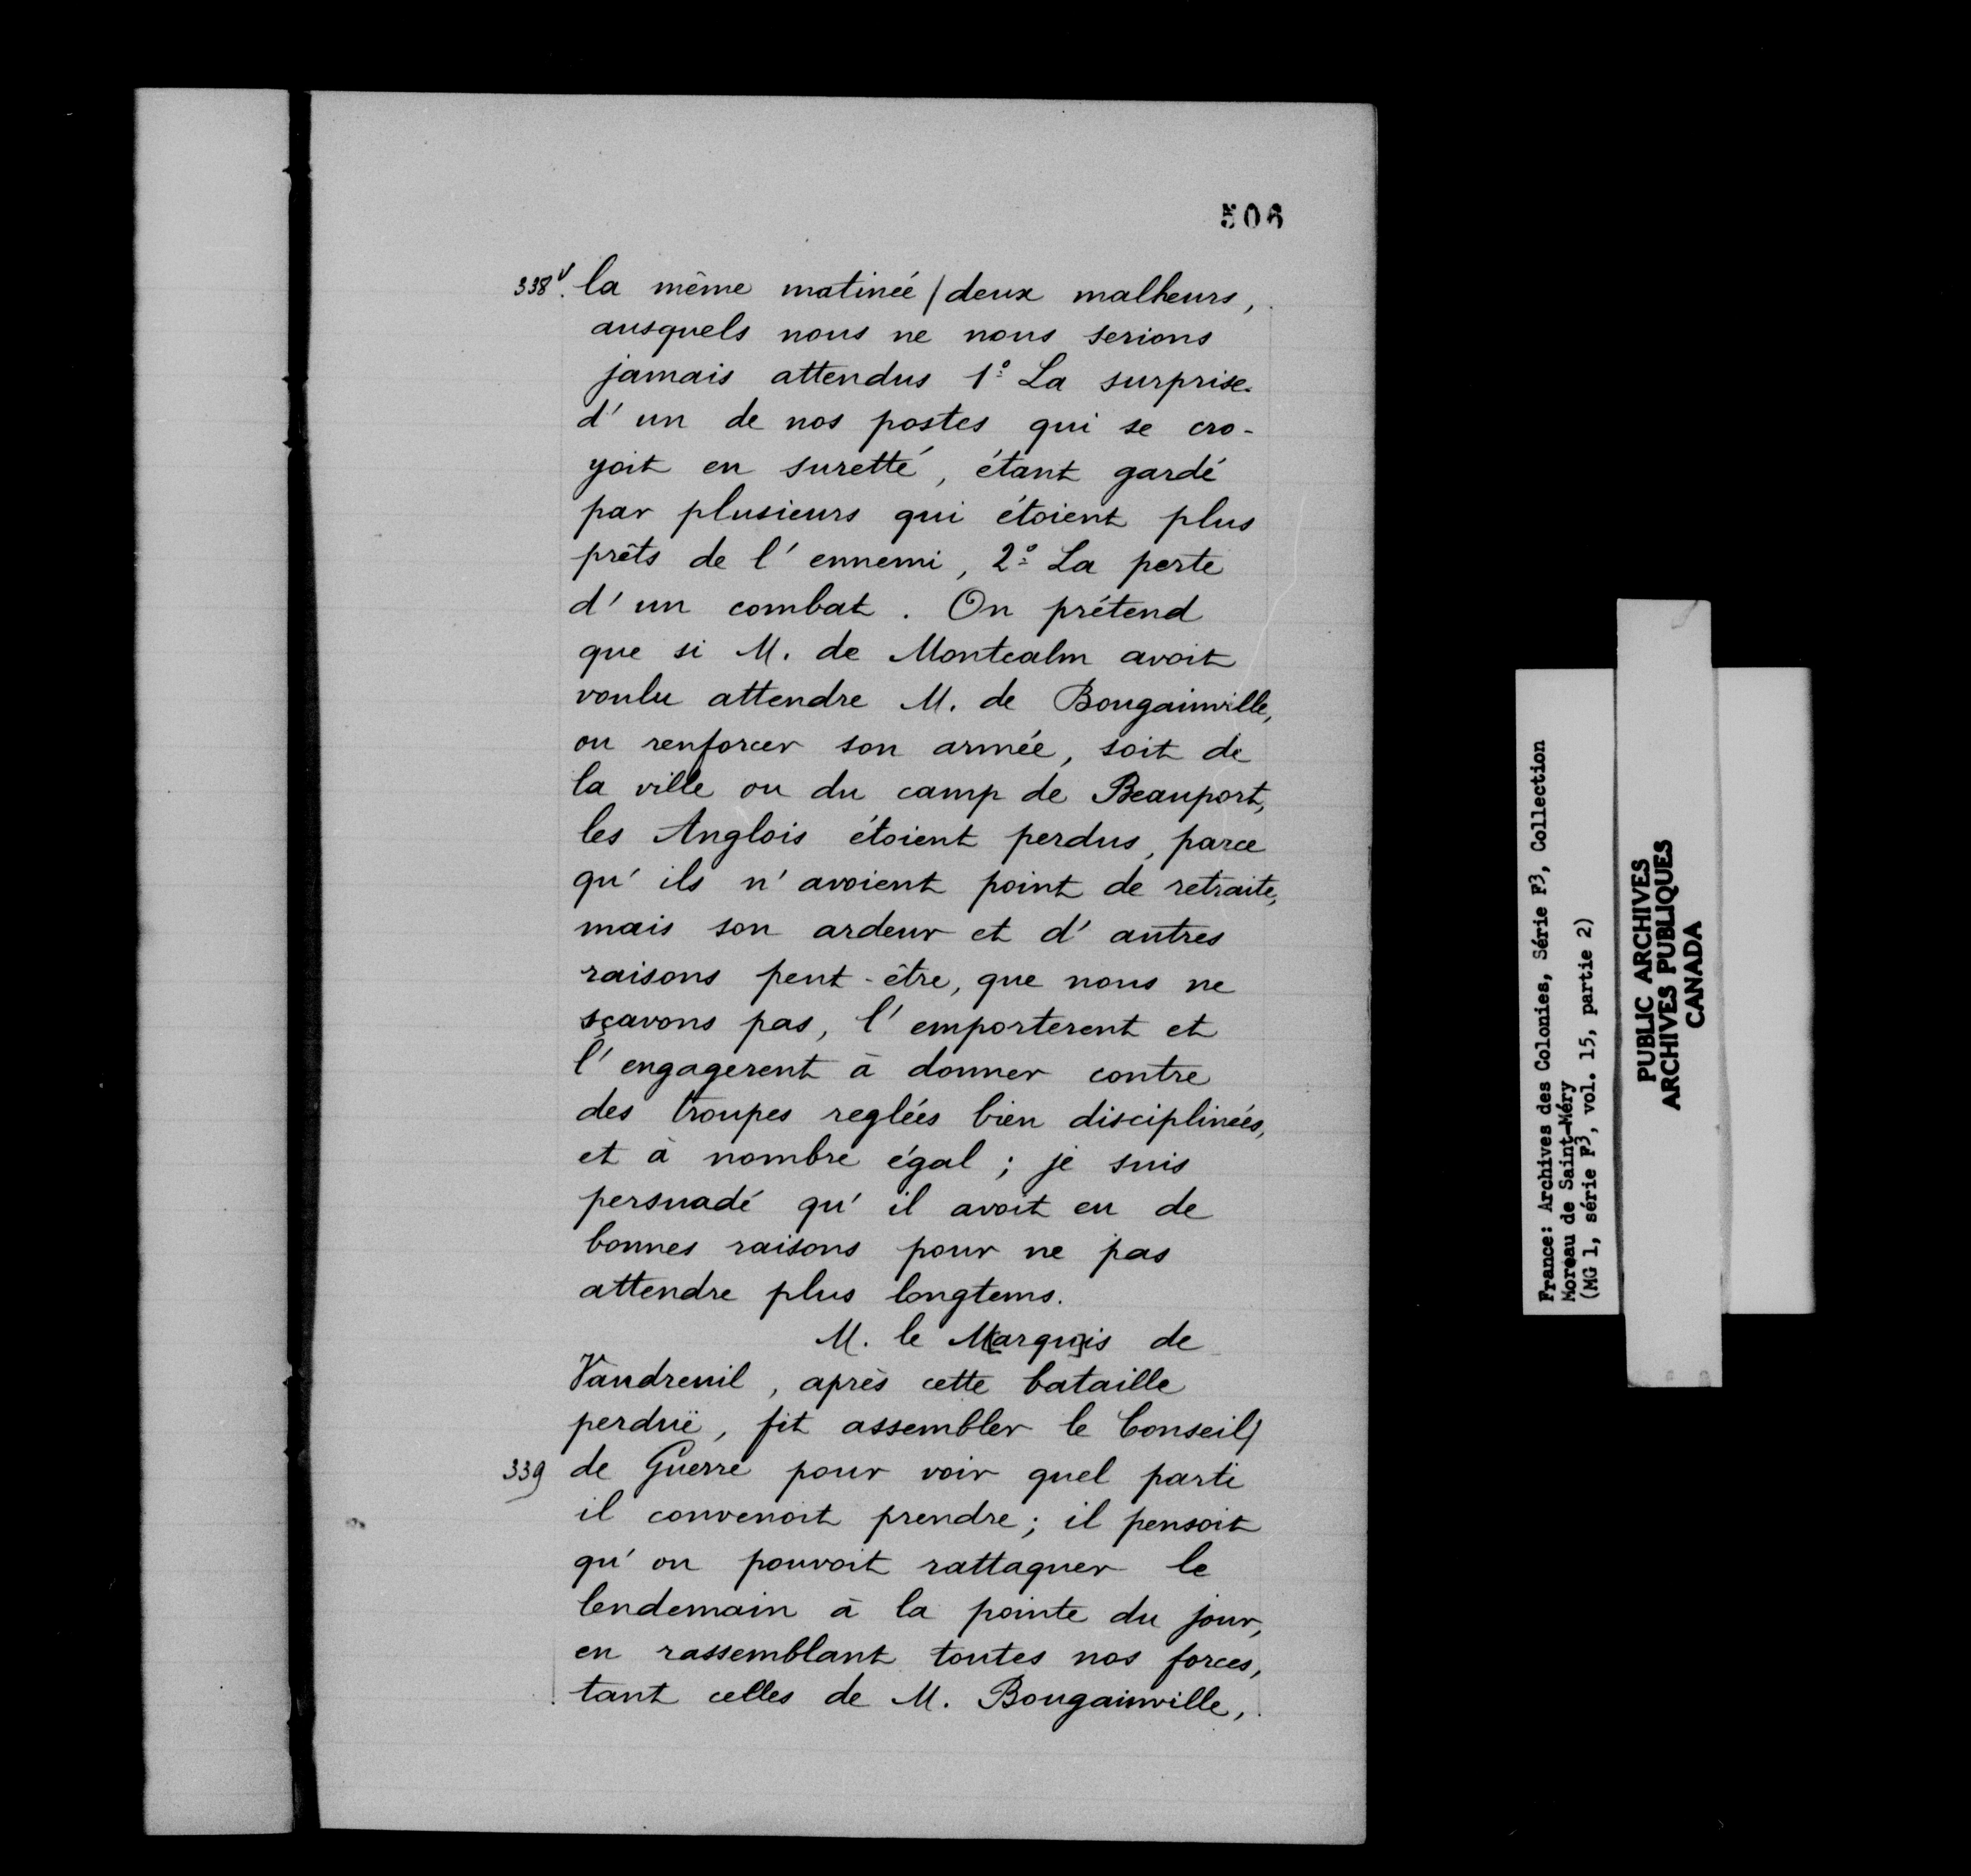 506
338v. la même matinée / deux malheurs,
ausquels nous ne nous serions
jamais attendus 1° La surprise
d'un de nos postes qui se cro-
yoit en suretté, étant gardé
par plusieurs qui étoient plus
prêts de l'ennemi, 2° La perte
d'un combat. On prétend
que si M. de Montcalm avoit
voulu attendre M. de Bougainville,
ou renforcer son armée, soit de
la ville ou du camp de Beauport,
les Anglois étoient perdus, parce
qu'ils n'avoient point de retraite,
mais son ardeur et d'autres
raisons peut-être, que nous ne
sçavons pas, l'emporterent et
l'engagerent à donner contre
des troupes reglées bien disciplinées,
et à nombre égal ; je suis
persuadé qu'il avoit eu de
bonnes raisons pour ne pas
attendre plus longtems.
M. le M[arqu]is de
Vaudreuil, après cette bataille
perduë, fit assembler le Conseil/
339 de Guerre pour voir quel parti
il convenoit prendre ; il pensoit
qu'on pouvoit rattaquer le
lendemain à la pointe du jour,
en rassemblant toutes nos forces,
tant celles de M. Bougainville,
France: Archives des Colonies, Série F3, Collection
Moreau de Saint-Méry
(MG 1, série F3, vol. 15, partie 2)
PUBLIC ARCHIVES
ARCHIVES PUBLIQUES
CANADA